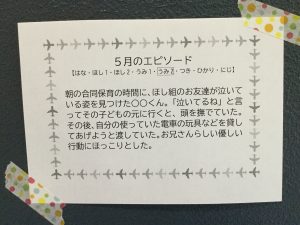 ５月のエピソード
【はな・ほし1・ほし2・うみ1・うみ2・つき・ひかり・にじ】
朝の合同保育の時間に、ほし組のお友達が泣いて
いる姿を見つけた〇〇くん。「泣いてるね」と言
ってその子どもの元に行くと、頭を撫でていた。
その後、自分の使っていた電車の玩具などを貸し
てあげようと渡していた。お兄さんらしい優しい
行動にほっこりとした。